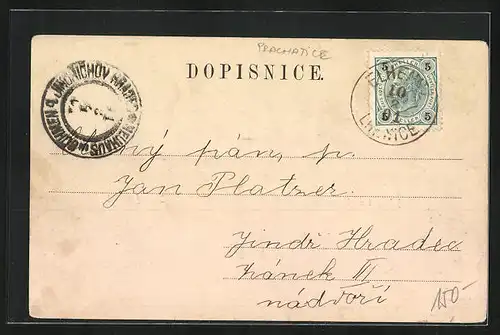 PRACHATICE
DOPISNICE.
5 5
10
91
LHENICE
5 5
NEUHAUS
ný pán, p.
Jan Platzer.
Jindř. Hradec
Zámek III
nádvoří
150-